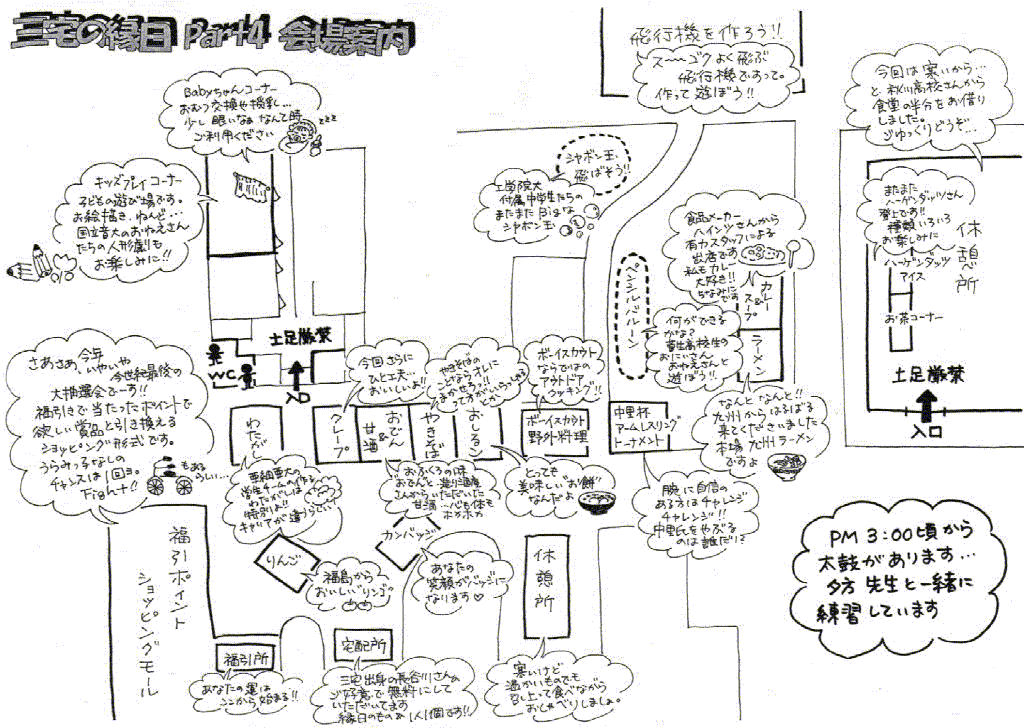 三宅の縁日 Part4 会場案内
飛行機を作ろう!!
ス〜〜ゴクよく飛ぶ
飛行機ですって。
作って遊ぼう!!
今回は寒いから…
と秋川高校さんから
食堂の半分をお借り
しました。
ごゆっくりどうぞ…
Babyちゃんコーナー
おむつ交換や授乳…
少し眠いなぁなんて時
ご利用ください
zzz
キッズプレイコーナー
子どもの遊び場です。
お絵描き、ねんど…
国立音大のおねえさん
たちの人形劇も
お楽しみに!!
シャボン玉
飛ばそう!!
工学院大
付属中学生たちの
またまたBigな
シャボン玉
食品メーカー
ハインツさんから
有カスタッフによる
出店です
私もカレー
大好き!!
ちなみに
です
カレー
&
スープ
ラーメン
またまた
ハーゲンダッツさん
登上です!!
種類いろいろ
お楽しみに
ハーゲンダッツ
アイス
お茶コーナー
休憩所
土足厳禁
入口
ペンシルバルーン
何ができる
かな?
おにいさん
おねえさんと
遊ぼう!!
土足厳禁
W.C.
入口
さあさぁ、今年
いやいや
今世紀最後の
大抽選会でーす!!
福引きで当たったポイントで
欲しい賞品と引き換える
ショッピング形式です。
うらみっこなしの
チャンスは1回ョ。
Fight!!
もある
らしい…
今回さらに
ひと工夫…
おいしいよ!!
やきそばの
ことならオレに
まかせろっ!!
ってすがいっってる
とか
ボーイスカウト
ならではの
アウトドア
クッキング!!
わたがし
クレープ
甘酒
&
おでん
やきそば
おしるこ
ボーイスカウト
野外料理
中里杯
アームレスリング
トーナメント
なんとなんと!!
九州からはるばる
来てくださいました
本場九州ラーメン
ですよ
学生チームの作る
わたがしは
特別よ!!
キャリアが違うらしい
おふくろの味
おでんと造り酒屋
さんからいただいた
甘酒…心も体も
ポカポカ
とっても
美味しい"お餅"
なんだよ
腕に自信の
ある方はチャレンジ
チャレンジ!!
中里氏をやぶる
のは誰だ!?
りんご
福島から
おいしいリンゴの
カンバッジ
あなたの
笑顔がバッジに
なります♡
休憩所
PM 3:00頃から
太鼓があります…
夕方 先生と一緒に
練習しています
福引ポイント
ショッピングモール
福引所
あなたの運は
ココから始まる!!
宅配所
三宅出身の長谷川さんの
ご好意で無料にして
いただいてます
縁日のもの 1人1個です!!
寒いけど
温かいものでも
召し上って食べながら
おしゃべりしましょ。